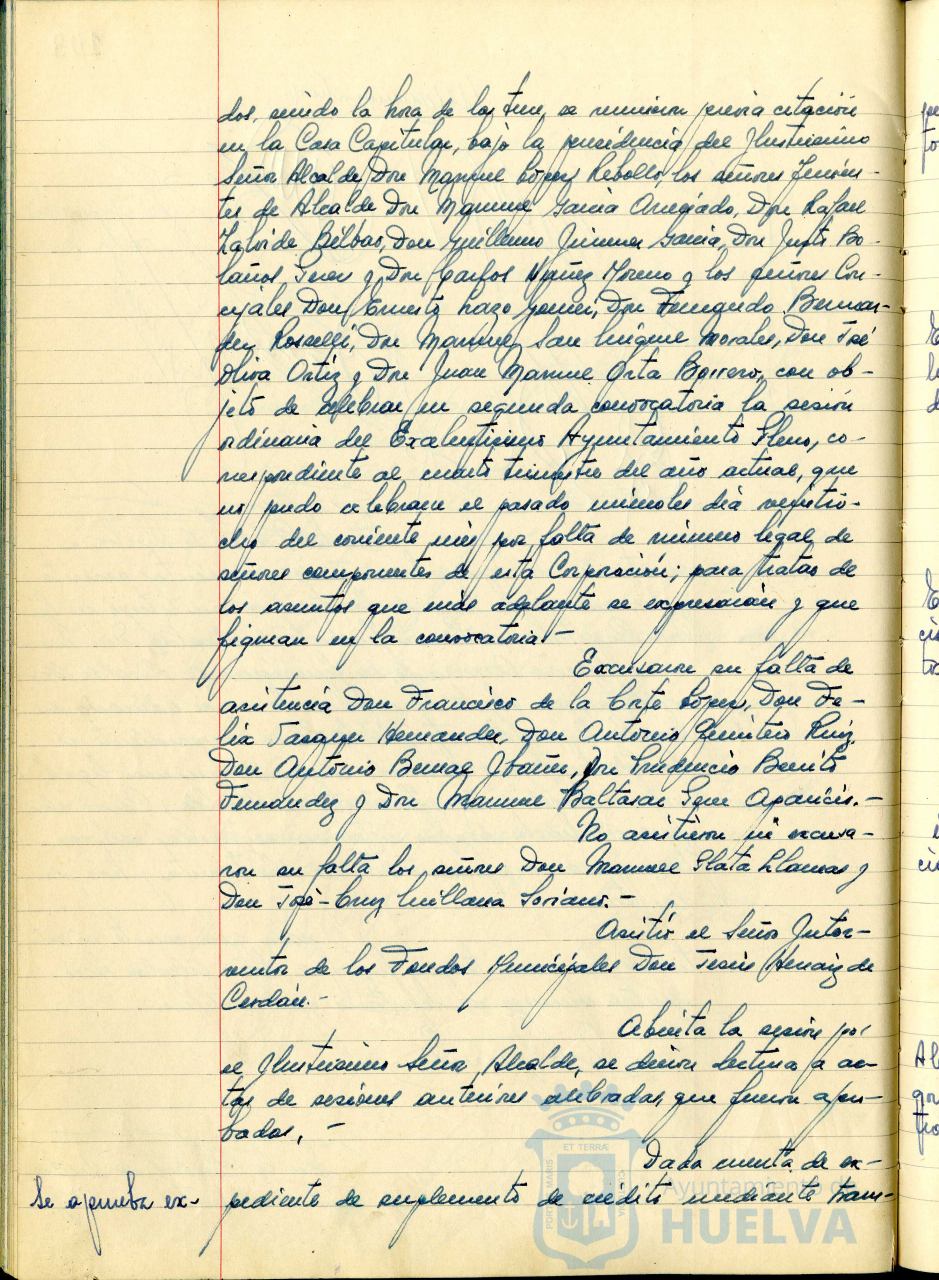 dos, siendo la hora de las trece, se reunieron previa citación
en la Casa Capitular, bajo la presidencia del Ilustrísimo
Señor Alcalde Don Manuel López Rebollo, los señores Tenien-
tes de Alcalde Don Manuel García Aregiado, Don Rafael
Zalvide Bilbao, Don Guillermo Jimenez García, Don Justo Bo-
laños Perez y Don Carlos Nuñez Moreno y los señores Con-
cejales Don Ernesto Lazo Gomez, Don Fernando Bermu-
dez Rosselli, Don Manuel San Miguel Morales, Don José
Oliva Ortiz y Don Juan Manuel Orta Borrero, con ob-
jeto de celebrar en segunda convocatoria la sesión
ordinaria del Excelentísimo Ayuntamiento Pleno, co-
rrespondiente al cuarto trimestre del año actual, que
no pudo celebrarse el pasado miercoles dia veintio-
cho del corriente mes por falta de número legal de
señores componentes de esta Corporación; para tratar de
los asuntos que más adelante se expresarán y que
figuran en la convocatoria.-
Excusaron su falta de
asistencia Don Francisco de la Corte López, Don Fe-
lix Hernandez, Don Antonio Quintero Ruiz,
Don Antonio Bernal Ibañez, Don Prudencio Benito
Fernandez y Don Manuel Baltasar Aparicio.-
No asistieron ni excusa-
ron su falta los señores Don Manuel Plata Llamas y
Don José-Cruz Soriano.-
Asistió el Señor Inter-
ventor de los Fondos Municipales Don Jesús de
Cerdán.-
Abierta la sesión por
el Ilustrísimo Señor Alcalde, se dieron lectura a ac-
tas de sesiones anteriores celebradas, que fueron apro-
badas.-
Dada cuenta de ex-
Se aprueba ex- pediente de suplemento de crédito mediante trans-
Ayuntamiento de
HUELVA